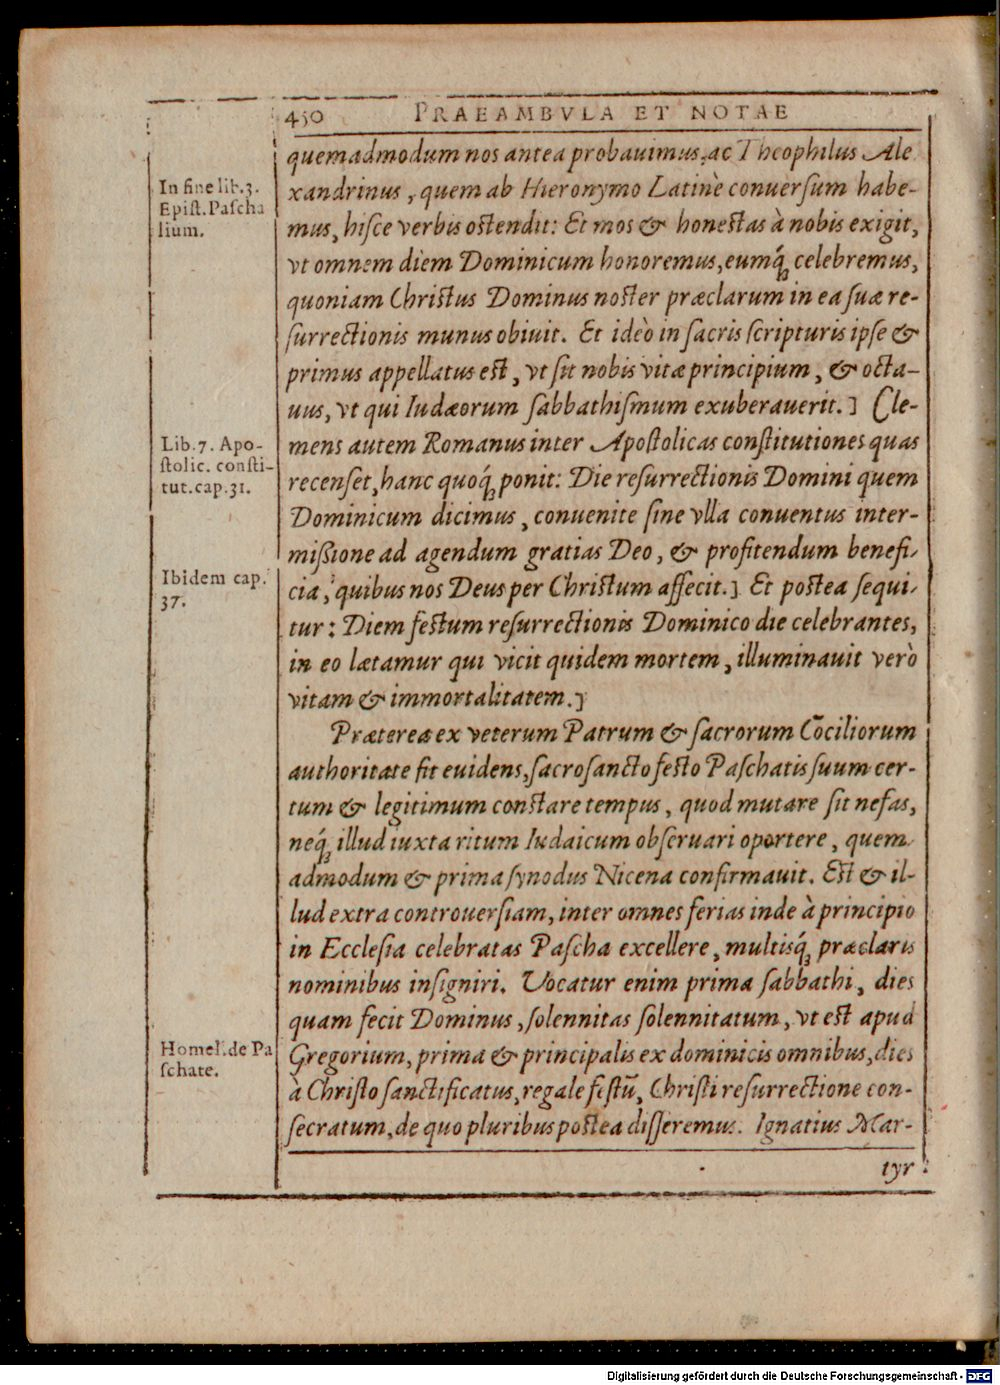 450 PRAEAMBVLA ET NOTAE
quemadmodum nos antea probauimus, ac Theophilus Ale
xandrinus, quem ab Hieronymo Latinè conuersum habe-
mus, hisce verbis ostendit: Et mos & honestas à nobis exigit,
vt omnem diem Dominicum honoremus, eumq́ꝫ celebremus,
quoniam Christus Dominus noster præclarum in ea suæ re-
surrectionis munus obiuit. Et ideò in sacris scripturis ipse &
primus appellatus est, vt sit nobis vitæ principium, & octa-
uus, vt qui Iudæorum sabbathismum exuberauerit.] Cle-
mens autem Romanus inter Apostolicas constitutiones quas
recenset, hanc quoq́ꝫ ponit: Die resurrectionis Domini quem
Dominicum dicimus, conuenite sine vlla conuentus inter-
mißione ad agendum gratias Deo, & profitendum benefi-
cia, quibus nos Deus per Christum affecit.] Et postea sequi-
tur: Diem festum resurrectionis Dominico die celebrantes,
in eo lætamur qui vicit quidem mortem, illuminauit verò
vitam & immortalitatem.]
Præterea ex veterum Patrum & sacrorum Cōciliorum
authoritate fit euidens, sacrosancto festo Paschatis suum cer-
tum & legitimum constare tempus, quod mutare sit nefas,
neq́ꝫ illud iuxta ritum Iudaicum obseruari oportere, quem
admodum & prima synodus Nicena confirmauit. Est & il-
lud extra controuersiam, inter omnes ferias inde à principio
in Ecclesia celebratas Pascha excellere, multisq́ꝫ præclaris
nominibus insigniri. Vocatur enim prima sabbathi, dies
quam fecit Dominus, solennitas solennitatum, vt est apud
Gregorium, prima & principalis ex dominicis omnibus, dies
à Christo sanctificatus, regale festū, Christi resurrectione con-
secratum, de quo pluribus postea disseremus. Ignatius Mar-
tyr
In fine lib.3.
Epist.Pascha
lium.
Lib.7. Apo-
stolic. consti-
tut.cap.31.
Ibidem cap.
37.
Homel.de Pa
schate.
Digitalisierung gefördert durch die Deutsche Forschungsgemeinschaft - DFG